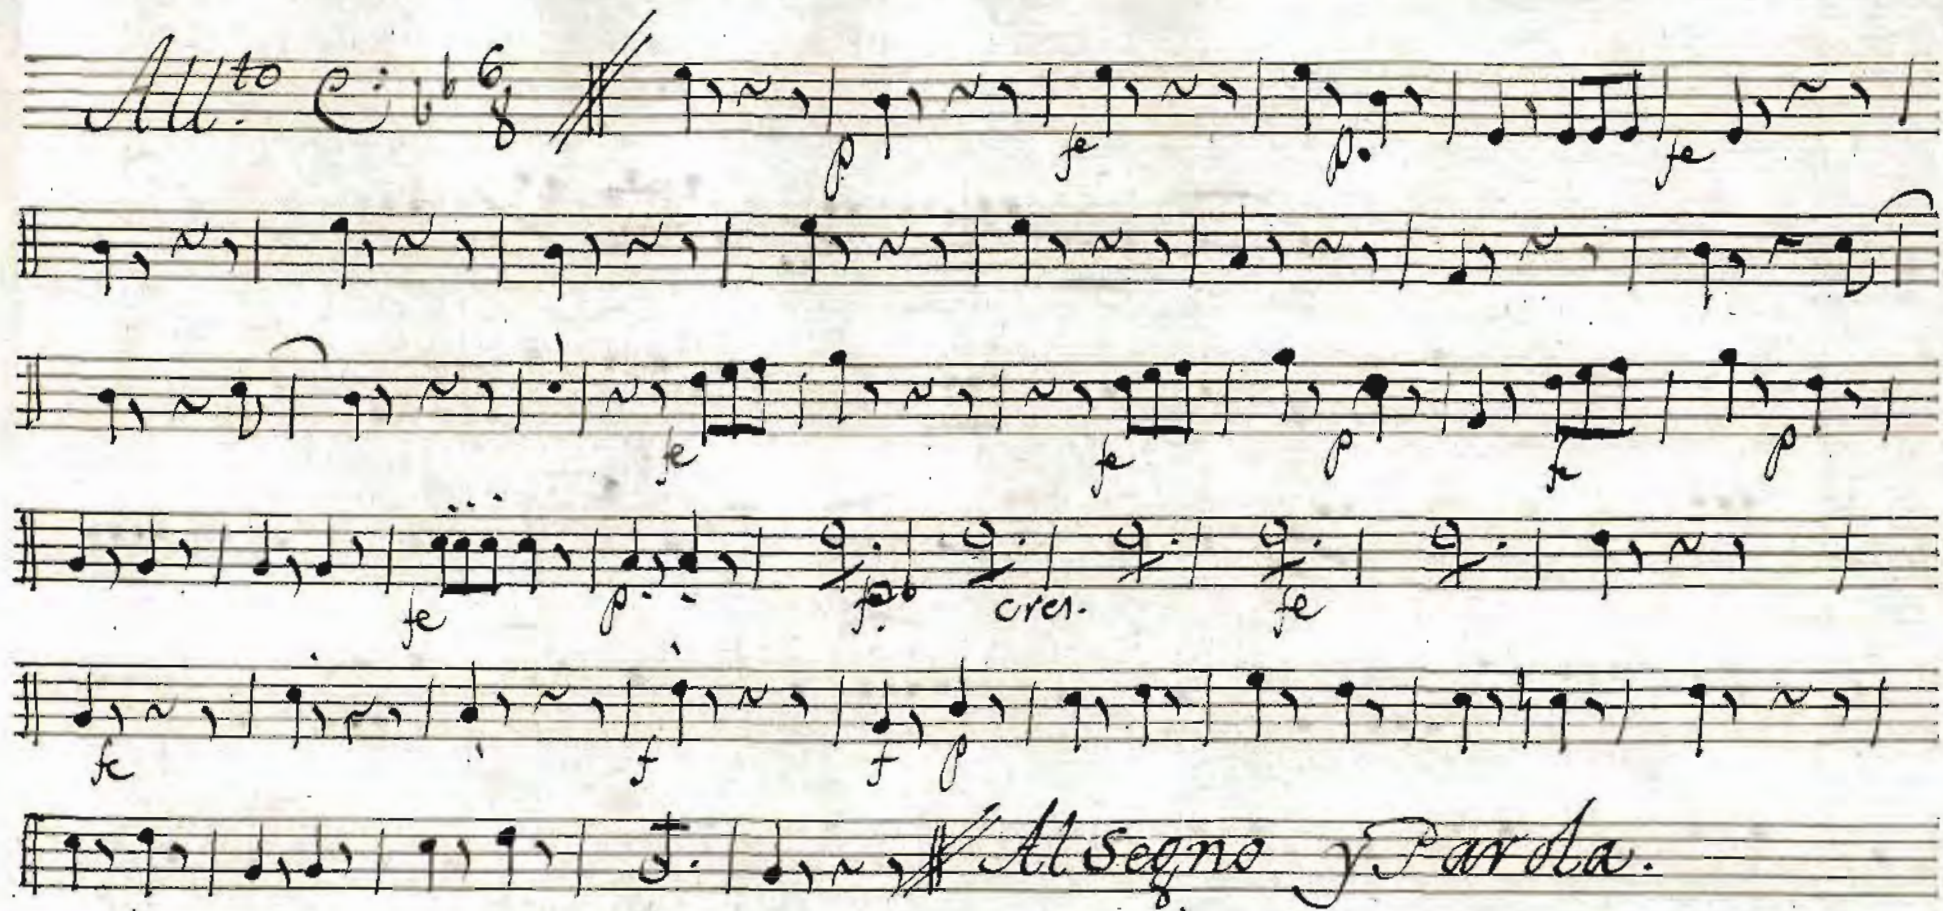 All.to 6 8
p fe p. fe
fe fe p fe p
fe p. cres. fe
fe f f p
Al segno y Parola.